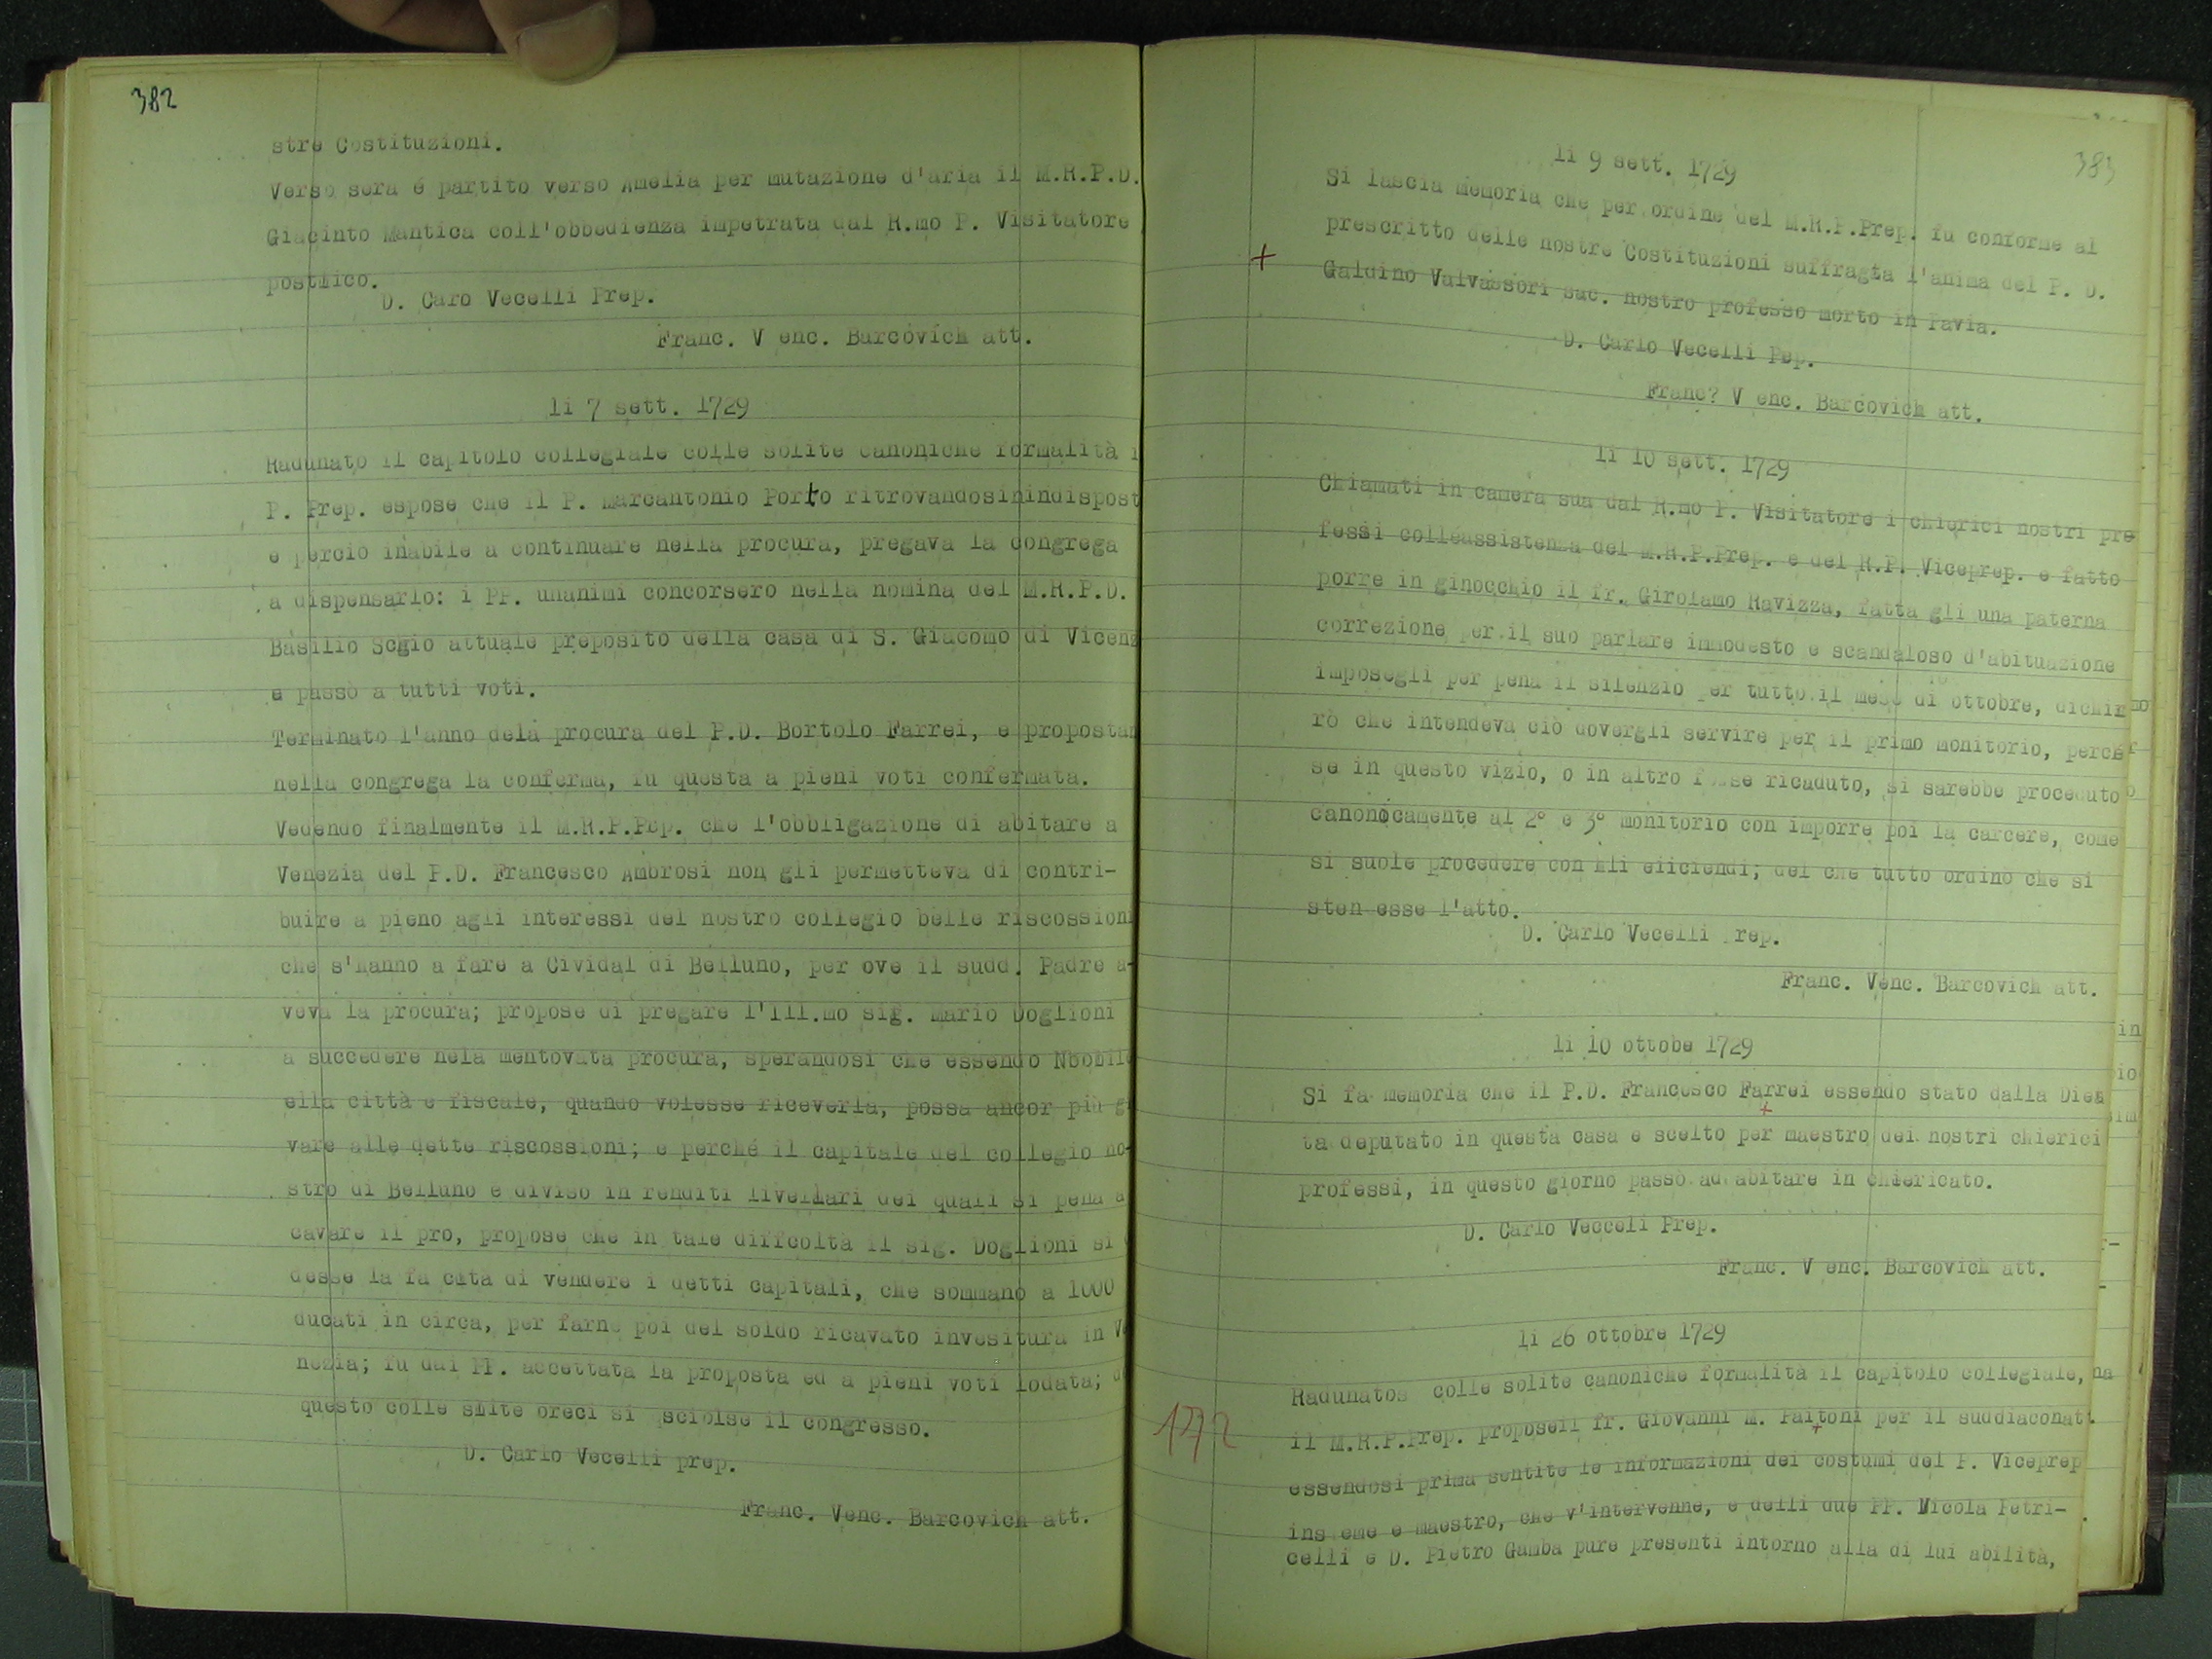 382
stre Costituzioni.
Verso sera é partito verso Amelia per mutazione d'aria il M.R.P.D.
Giacinto Mantica coll'obbedienza impetrata dal R.mo P. Visitatore
postlico.
D. Caro Vecelli Prep.
Franc. V enc. Barcovich att.
li 7 sett. 1729
Radunato il capitolo collegiale colle solite canoniche formalità i
P. Prep. espose che il P. Marcantonio Porto ritrovandosinindispost
e perciò inabile a continuare nella procura, pregava la congrega
a dispensarlo: i PP. unanimi concorsero nella nomina del M.R.P.D.
Basilio Scgio attuale preposito della casa di S. Giacomo di Vicenz
e passò a tutti voti.
Terminato l'anno dela procura del P.D. Bortolo Farrei, e propostan
nella congrega la conferma, fu questa a pieni voti confermata.
Vedendo finalmente il M.R.P.Pep. che l'obbligazione di abitare a
Venezia del P.D. Francesco Ambrosi non gli permetteva di contri-
buire a pieno agli interessi del nostro collegio belle riscossioni
che s'hanno a fare a Cividal di Belluno, per ove il sudd. Padre a-
veva la procura; propose di pregare l'Ill.mo sig. Mario Doglioni
a succedere nela mentovata procura, sperandosi che essendo Nbobile
ella città e fiscale, quando volesse riceverla, possa ancor più g
vare alle dette riscossioni; e perché il capitale del collegio no-
stro di Belluno e diviso in renditi livellari dei quali si pena a
cavare il pro, propose che in tale diffcoltà il sig. Doglioni si
desse la fa cltà di vendere i detti capitali, che sommano a 1000
ducati in circa, per farne poi del soldo ricavato invesitura in Ve
nezia; fu dai PP. accettata la proposta ed a pieni voti lodata; d
questo colle slite oreci si sciolse il congresso.
D. Carlo Vecelli prep.
Franc. Venc. Barcovich att.
383
li 9 sett. 1729
Si lascia memoria che per ordine del M.R.P.Prep. fu conforme al
prescritto delle nostre Costituzioni suffragta l'anima del P. D.
+
Galdino Valvassori sac. nostro professo morto in Pavia.
D. Carlo Vecelli Pep.
Franc? V enc. Barcovich att.
li 10 sett. 1729
Chiamati in camera sua dal R.mo P. Visitatore i chierici nostri pro
fessi colléassistenza del M.R.P.Prep. e del R.P. Viceprep. e fatto
porre in ginocchio il fr. Girolamo Ravizza, fatta gli una paterna
correzione per il suo parlare immodesto e scandaloso d'abituazione
imposegli per pena il silenzio per tutto il mese di ottobre, dichia
rò che intendeva ciò dovergli servire per il primo monitorio, perché
se in questo vizio, o in altro f sse ricaduto, si sarebbe proceduto
canonicamente al 2° e 3° monitorio con imporre poi la carcere, come
si suole procedere con gli eiiciendi; del che tutto ordinò che si
sten esse l'atto.
D. Carlo Vecelli rep.
Franc. Venc. Barcovich att.
li 10 ottobe 1729
Si fa memoria che il P.D. Francesco Farrei essendo stato dalla Dies
+
ta deputato in questa casa e scelto per maestro dei nostri chierici
professi, in questo giorno passò ad abitare in chiericato.
D. Carlo Vecceli Prep.
Franc. V enc. Barcovich att.
li 26 ottobre 1729
Radunatos colle solite canoniche formalità il capitolo collegiale,
172
il M.R.P.Prep. proposeil fr. Giovanni M. Paitoni per il suddiaconat.
+
essendosi prima sentite le informazioni dei costumi del P. Viceprep
ins eme e maestro, che v'intervenne, e delli due PP. Nicola Petri-
celli e D. Pietro Gamba pure presenti intorno alla di lui abilità,